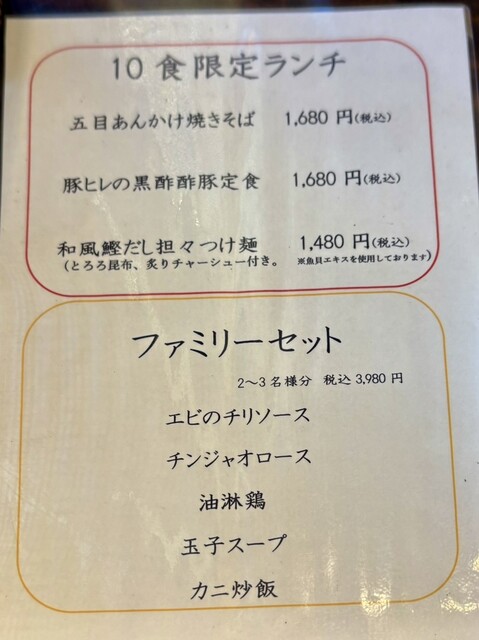 10食限定ランチ
五目あんかけ焼きそば 1,680 円(税込)
豚ヒレの黒酢酢豚定食 1,680 円(税込)
和風鰹だし担々つけ麺 1,480 円(税込)
(とろろ昆布、炙りチャーシュー付き。 ※魚貝エキスを使用しております)
ファミリーセット
2〜3名様分 税込 3,980 円
エビのチリソース
チンジャオロース
油淋鶏
玉子スープ
カニ炒飯